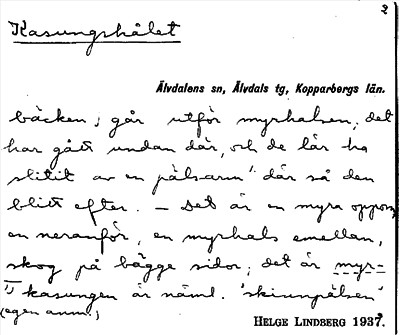 2
Kasungshålet
Älvdalens sn, Älvdals tg, Kopparbergs län.
bäcken; går utför myrhalsen, det
har gått undan där, och de lär ha
slitit av en pälsarm¹⁾ där så den
blitt efter. – Det är en myra oppom
en neranför, en myrhals emellan,
skog på bägge sidor; det är myr-
¹⁾ kasungen är näml. 'skinnpälsen'
(egen anm.)
HELGE LINDBERG 1937.